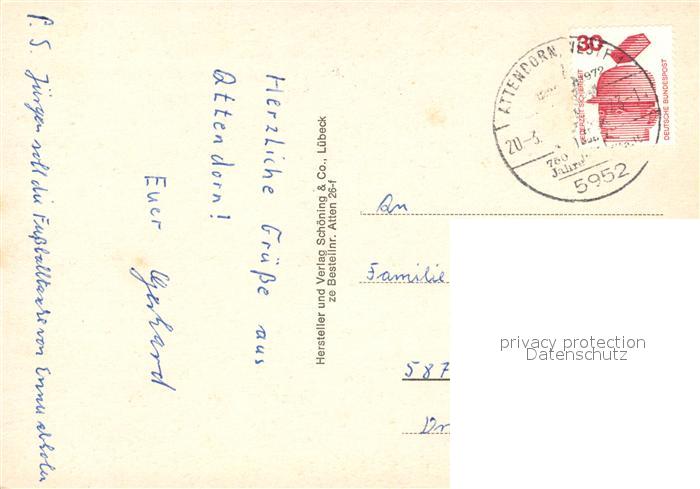 Herzliche Grüße aus
Attendorn!
Euer Gerhard
P. S. Jürgen soll die Fußballtasche von Ennu abholen
Hersteller und Verlag Schöning & Co., Lübeck
ze Bestellnr. Atten 26-f
30
JEDERZEIT SICHERHEIT
DEUTSCHE BUNDESPOST
ATTENDORN, WESTF
1972
20-3.
Jahre
5952
An
Familie
587
privacy protection
Datenschutz